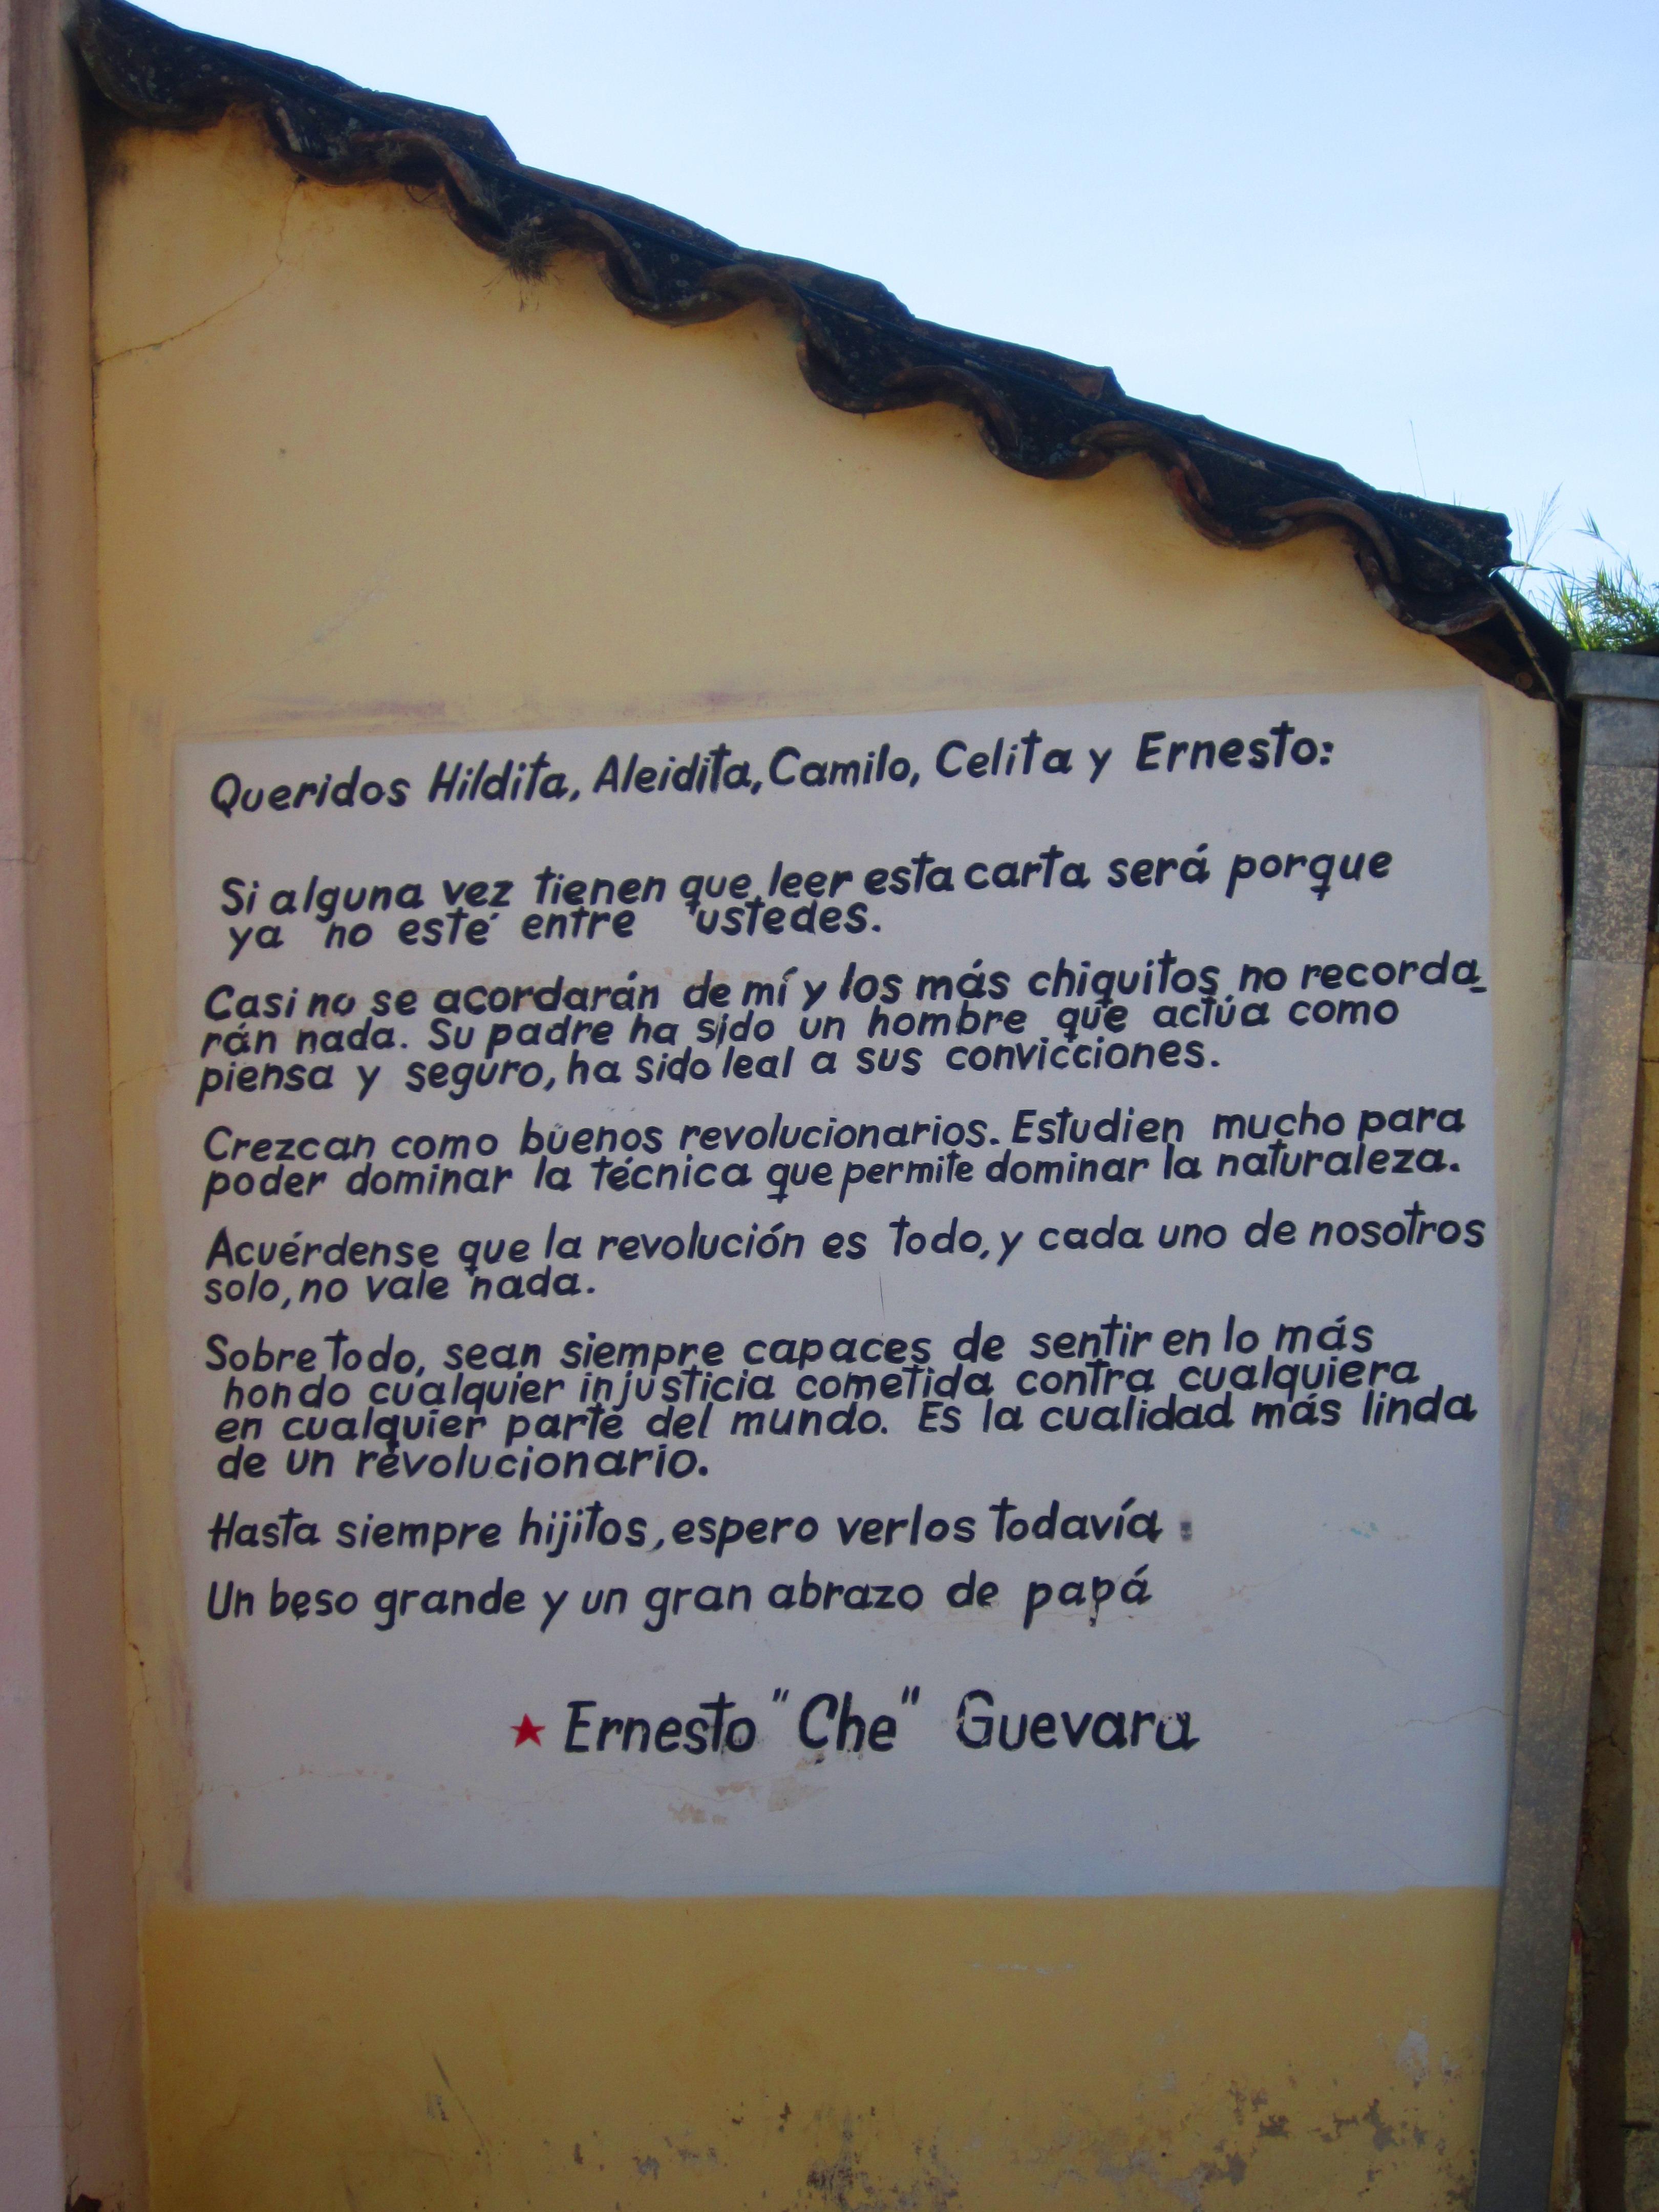 Queridos Hildita, Aleidita, Camilo, Celita y Ernesto:
Si alguna vez tienen que leer esta carta será porque
ya no esté entre ustedes.
Casi no se acordarán de mí y los más chiquitos no recorda_
rán nada. Su padre ha sido un hombre que actúa como
piensa y seguro, ha sido leal a sus convicciones.
Crezcan como buenos revolucionarios. Estudien mucho para
poder dominar la técnica que permite dominar la naturaleza.
Acuérdense que la revolución es todo, y cada uno de nosotros
solo, no vale nada.
Sobre todo, sean siempre capaces de sentir en lo más
hondo cualquier injusticia cometida contra cualquiera
en cualquier parte del mundo. Es la cualidad más linda
de un revolucionario.
Hasta siempre hijitos, espero verlos todavía.
Un beso grande y un gran abrazo de papá
★ Ernesto "Che" Guevara